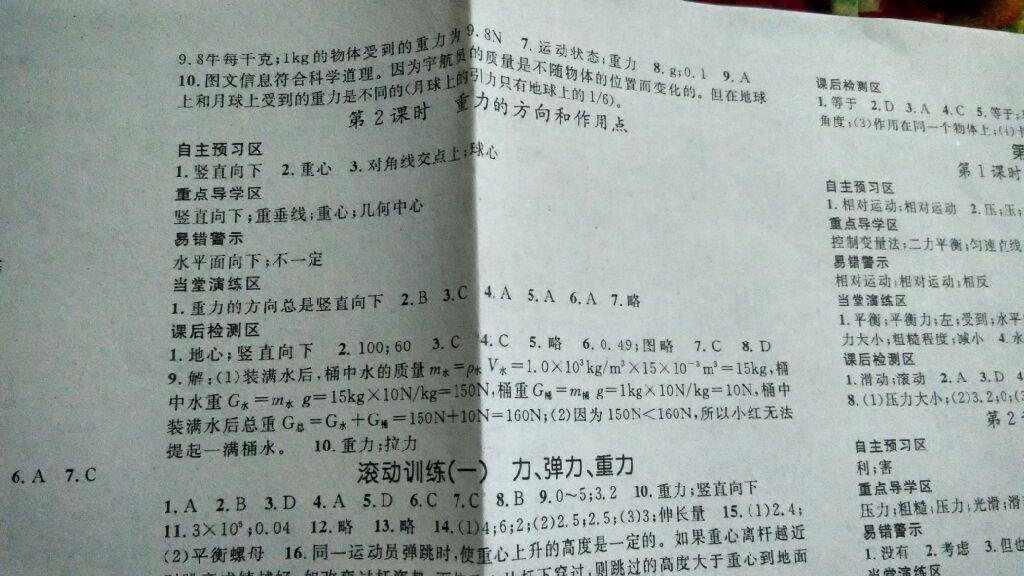 9.8牛每千克;1kg的物体受到的重力为9.8N 7.运动状态;重力 8.g;0.1 9.A
10.图文信息符合科学道理。因为宇航员的质量是不随物体的位置而变化的。但在地球
上和月球上受到的重力是不同的(月球上的引力只有地球上的1/6)。
第2课时 重力的方向和作用点
自主预习区
1.竖直向下 2.重心 3.对角线交点上;球心
重点导学区
竖直向下;重垂线;重心;几何中心
易错警示
水平面向下;不一定
当堂演练区
1.重力的方向总是竖直向下 2.B 3.C 4.A 5.A 6.A 7.略
课后检测区
1.地心;竖直向下 2.100;60 3.C 4.C 5.略 6.0.49;图略 7.C 8.D
9.解:(1)装满水后,桶中水的质量m水=ρ水V水=1.0×10³kg/m³×15×10⁻³m³=15kg,桶
中水重G水=m水g=15kg×10N/kg=150N,桶重G桶=m桶g=1kg×10N/kg=10N,桶中
装满水后总重G总=G水+G桶=150N+10N=160N;(2)因为150N<160N,所以小红无法
提起一满桶水。 10.重力;拉力
6.A 7.C
滚动训练(一) 力、弹力、重力
1.A 2.B 3.D 4.A 5.D 6.C 7.C 8.B 9.0~5;3.2 10.重力;竖直向下
11.3×10⁵;0.04 12.略 13.略 14.(1)4;6;2;(2)2.5;2.5;(3)3;伸长量 15.(1)2.4;
(2)平衡螺母 16.同一运动员弹跳时,使重心上升的高度是一定的。如果重心离杆越近
杆下穿过,则跳过的高度大于重心到地面
课后检测区
1.等于 2.D 3.A 4.C 5.等于;
角度;(3)作用在同一个物体上;(4)
第
第1课时
自主预习区
1.相对运动;相对运动 2.压;压;
重点导学区
控制变量法;二力平衡;匀速直线
易错警示
相对运动;相对运动;相反
当堂演练区
1.平衡;平衡力;左;受到;水平
力大小;粗糙程度;减小 4.水
课后检测区
1.滑动;滚动 2.A 3.D 4
8.(1)压力大小;(2)3.2;0;(3
第2
自主预习区
利;害
重点导学区
压力;粗糙;压力;光滑;滑
易错警示
1.没有 2.考虑 3.但也
当堂演练区